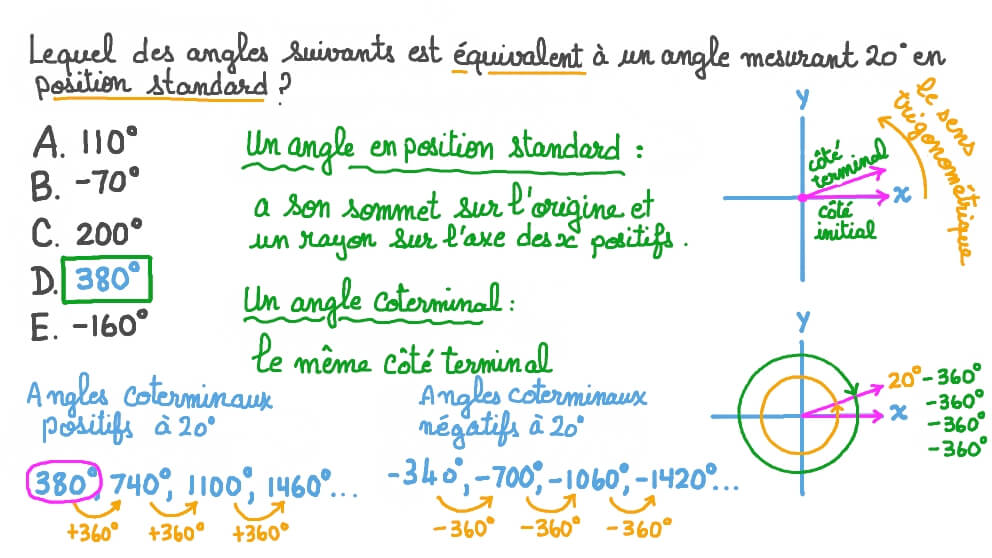 Lequel des angles suivants est équivalent à un angle mesurant 20° en
position standard ?
A. 110°
B. -70°
C. 200°
D. 380°
E. -160°
Un angle en position standard :
a son sommet sur l'origine et
un rayon sur l'axe des x positifs.
Un angle coterminal :
le même côté terminal
y
le sens
trigonométrique
côté
terminal
x
côté
initial
Angles coterminaux
positifs à 20°
380°, 740°, 1100°, 1460°...
+360° +360° +360°
Angles coterminaux
négatifs à 20°
-340°, -700°, -1060°, -1420°...
-360° -360° -360°
y
20° -360°
x -360°
-360°
-360°